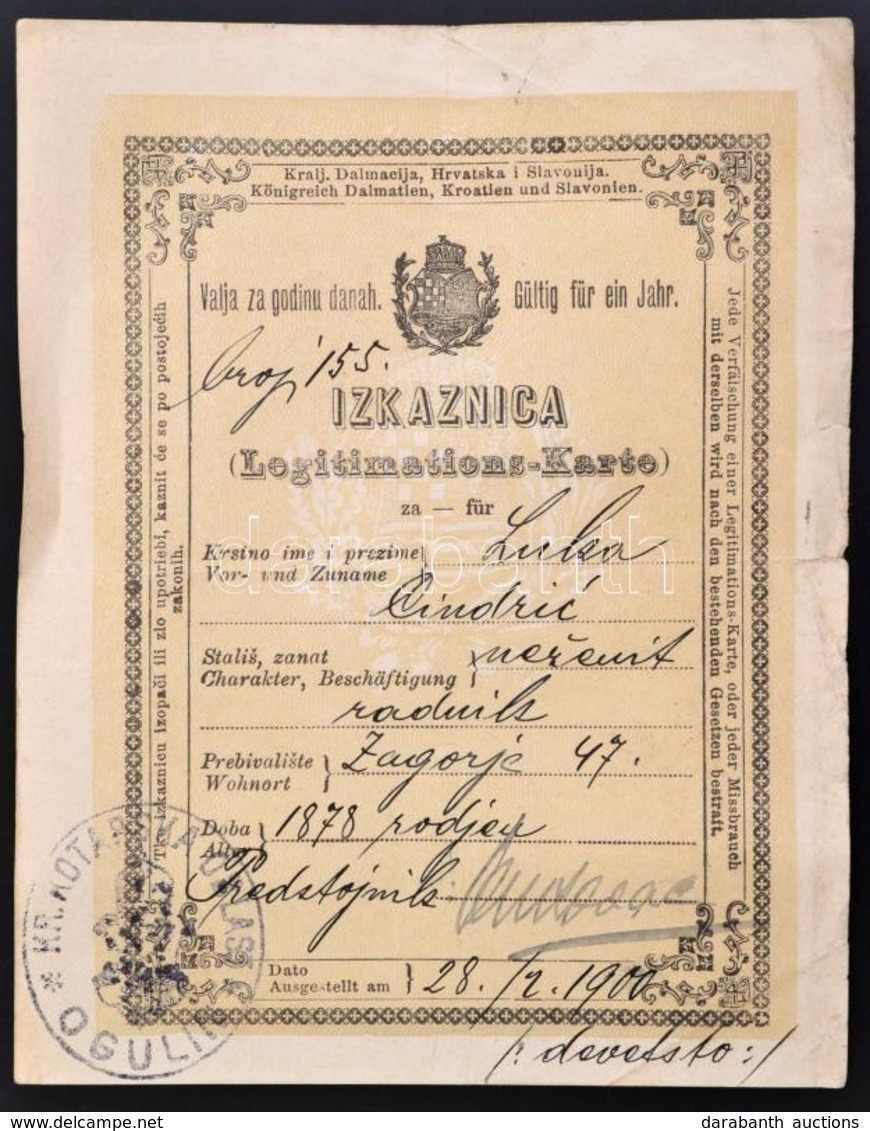 Kralj. Dalmacija, Hrvatska i Slavonija.
Königreich Dalmatien, Kroatien und Slavonien.
Valja za godinu danah.
Gültig für ein Jahr.
broj 155.
IZKAZNICA
(Legitimations-Karte)
za — für
Krsno ime i prezime
Vor- und Zuname
Luka
Cindrić
Stališ, zanat
Charakter, Beschäftigung
neženit
radnik
Prebivalište
Wohnort
Zagorje 47.
Doba
Alter
1878 rodjen
Predstojnik
Dato
Ausgestellt am
28./2. 1900
/: devetsto :/
Tko izkaznicu izopači ili zlo upotriebi, kaznit će se po postojećih
zakonih.
Jede Verfälschung einer Legitimations-Karte, oder jeder Missbrauch
mit derselben wird nach den bestehenden Gesetzen bestraft.
* KR. KOTARSKA OBLAST *
OGULIN
darabanth
darabanth auctions
www.delcampe.net